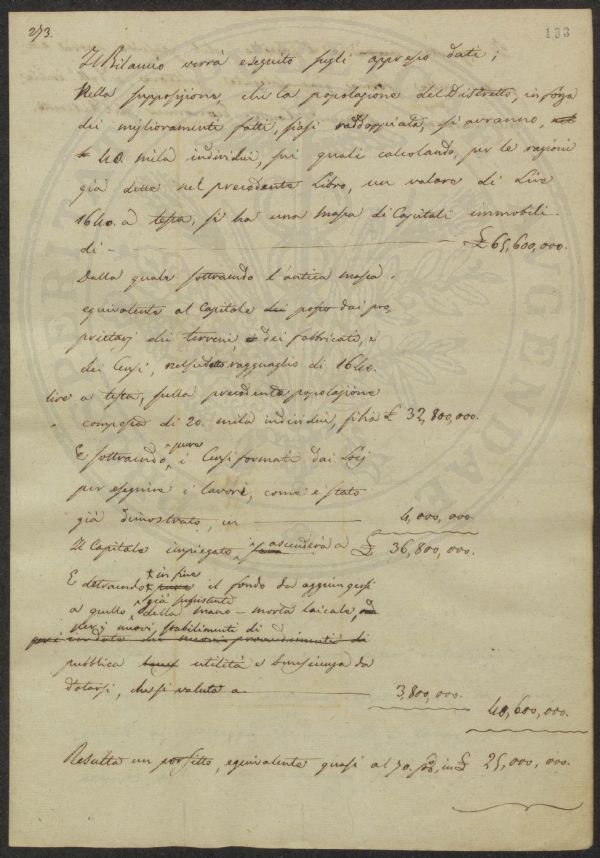 273.
133
Il Bilancio verrà eseguito sugli appresso dati;
Nella supposizione, che la popolazione del Distretto, in forza
dei miglioramenti fatti, siasi raddoppiata, si avranno,
40. mila individui, sui quali calcolando, per le ragioni
già dette nel precedente Libro, un valore di Lire
1640. a testa, si ha una massa di Capitali immobili
di — £ 65,600,000.
Dalla quale sottraendo l'antica massa
equivalente al Capitale dei posse dai pro,
prietarj di terreni, dei fabbricati, e
dei Censi, nel sudetto ragguaglio di 1640.
lire a testa, sulla precedente popolazione
composta di 20. mila individui, si ha £ 32,800,000.
E sottraendo pure i Censi formati dai Socj
per eseguire i lavori, come è stato
già dimostrato, in — 4,000,000.
Il Capitale impiegato ascenderà a £ 36,800,000.
E detraendo in fine il fondo da aggiungersi
a quello già sussistente della mano-morta laicale,
per i nuovi stabilimenti di
pubblica utilità e beneficenza da
dotarsi, che si valuta a — 3,800,000.
40,600,000.
Resulta un profitto, equivalente quasi al 70. , in £ 25,000,000.